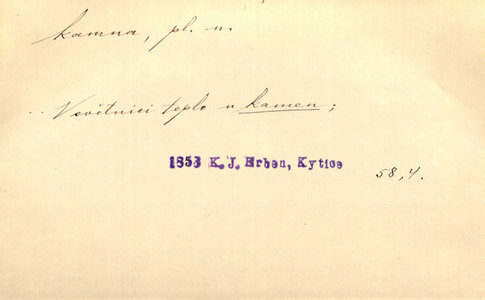 kamna, pl. n.
.. V světnici teplo u kamen;
1853 K. J. Erben, Kytice
58,4.